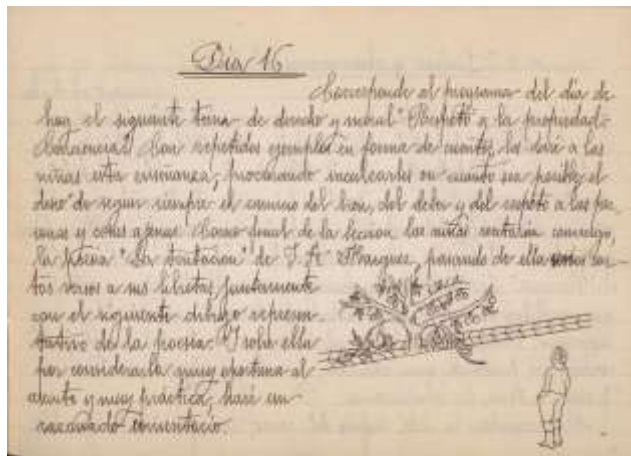 Dia 16
Corresponde al programa del día de
hoy el siguiente tema de derecho y moral "Respeto a la propiedad.
Con repetidos ejemplos en forma de cuentos, les daré a las
niñas esta enseñanza, procurando inculcarles en cuanto sea posible el
deseo de seguir siempre el camino del bien, del deber y del respeto a las per-
sonas y cosas ajenas. Como final de la lección las niñas
la poesía "La tentación" de J. Mª Marquez, pasando de ella
tos versos a sus libretas juntamente
con el siguiente dibujo represen-
tativo de la poesía. Y sobre ella
por considerarla muy oportuna al
asunto y muy práctica, haré un
adecuado comentario.